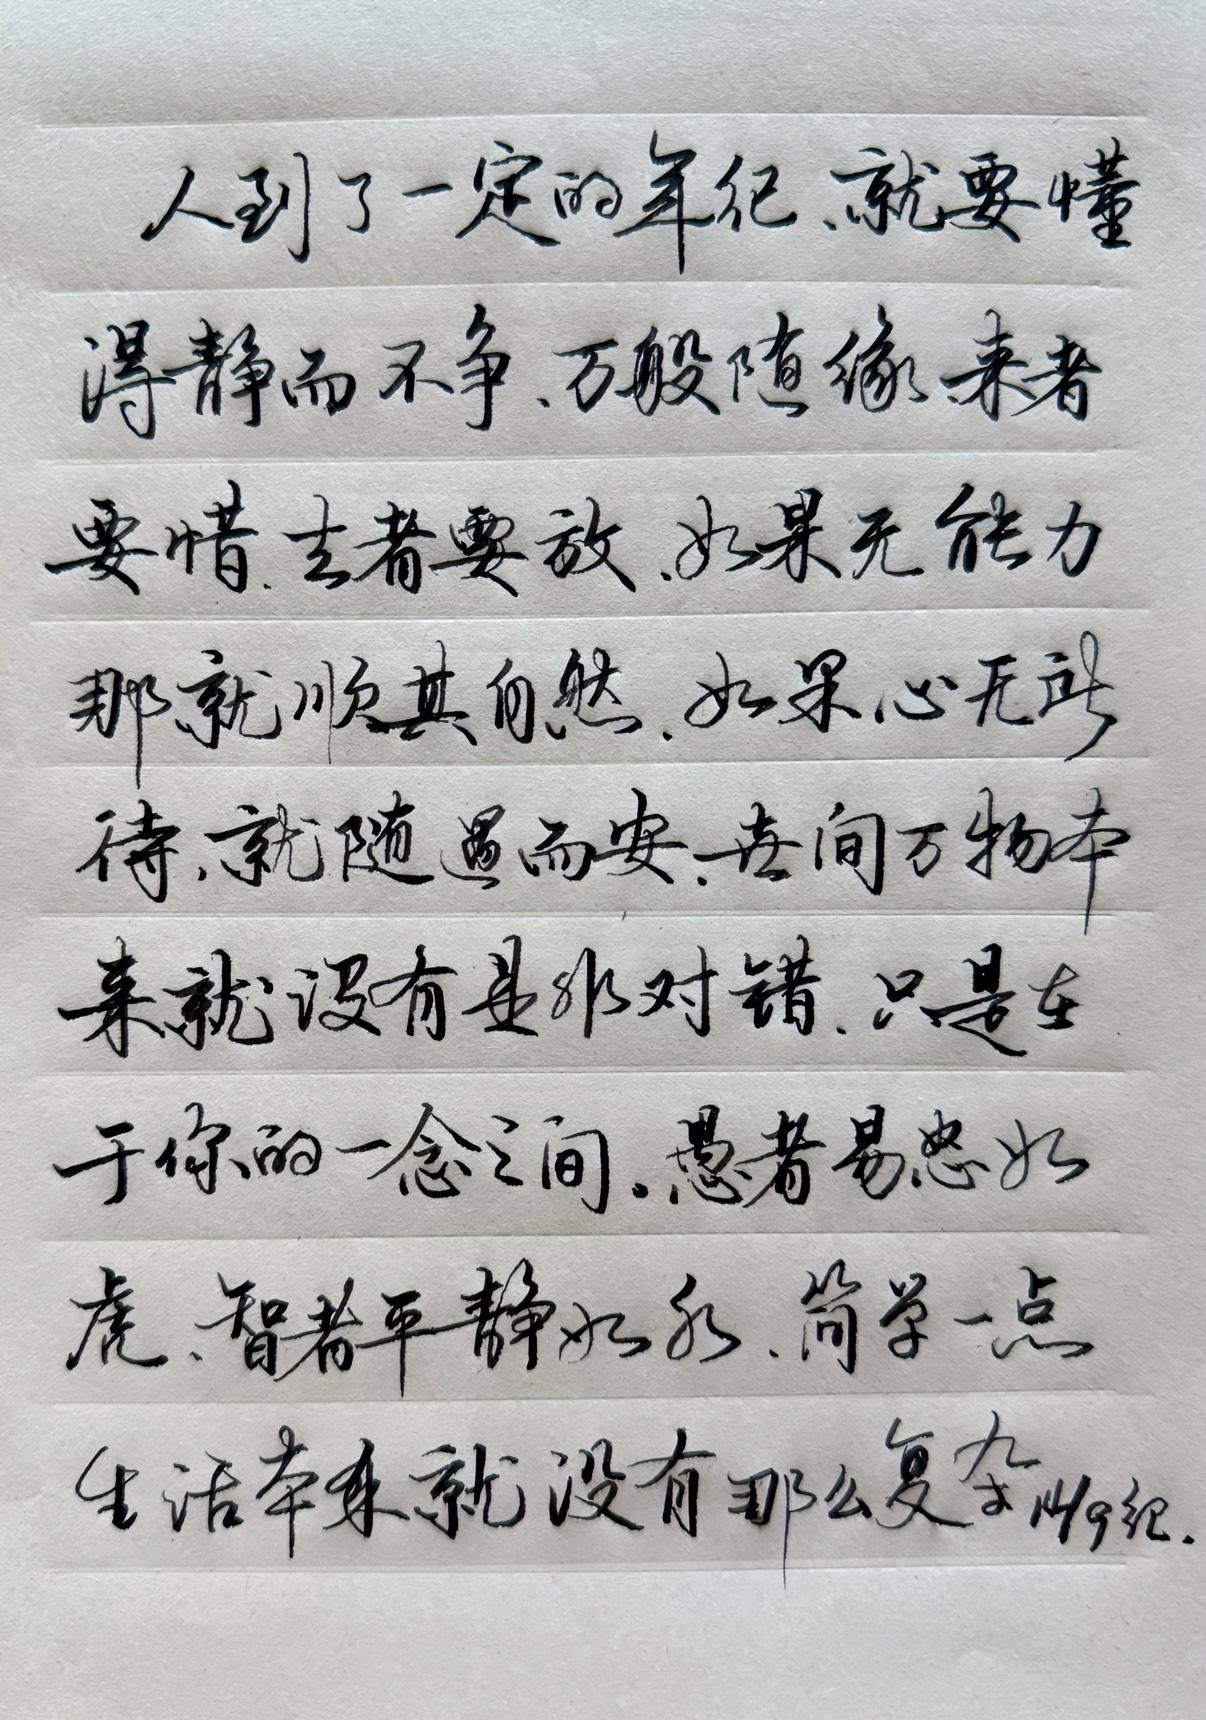 人到了一定的年纪、就要懂
得静而不争、万般随缘、来者
要惜、去者要放、如果无能力
那就顺其自然、如果心无所
待、就随遇而安、世间万物本
来就没有是非对错、只是在
于你的一念之间。愚者易怒如
虎、智者平静如水、简单一点
生活本来就没有那么复杂